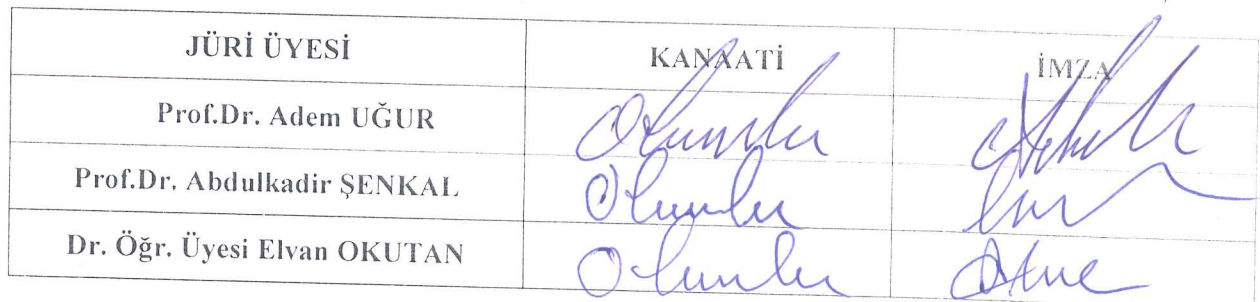 JÜRİ ÜYESİ KANAATİ İMZA
Prof.Dr. Adem UĞUR Olumlu
Prof.Dr. Abdulkadir ŞENKAL Olumlu
Dr. Öğr. Üyesi Elvan OKUTAN Olumlu